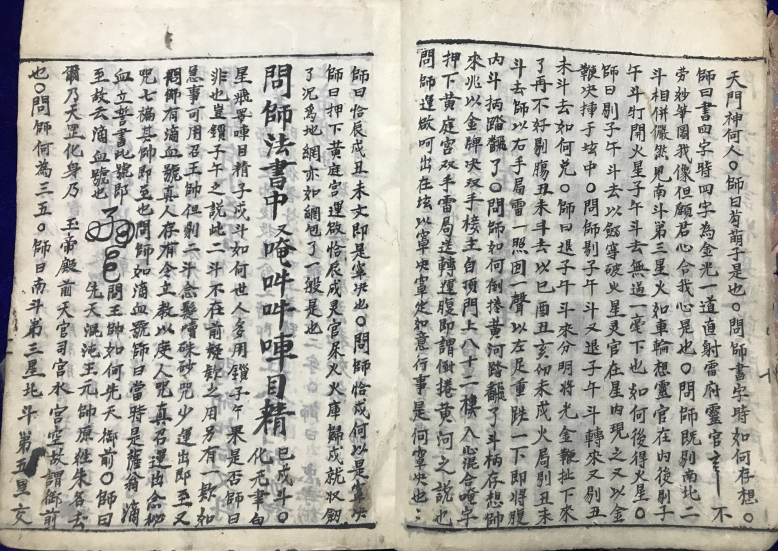 天門神何人〇師曰苟萌子是也〇問師書字時如何存想〇
師曰書四字時四字為金光一道直射雷府靈官 不
劳妙筆圖我像但願君心合我心是也〇問師既剔南北二
斗相併儼然見南斗第三星火如車輪想靈官在內後剔子
午斗打開火星子午斗去無過一毫下也如何後得火星〇
師曰剔子午斗去以劔穿破火星灵官在星内現之又以金
鞭决揷于坛中〇問師剔子午斗又退子午斗轉來又剔丑
未斗去如何兑〇師曰退子午斗來分明將光金鞭扯下來
了再不好剔膓丑未斗去以巳酉丑亥卯未成火局剔丑未
斗去師以右手局雷一照囬一聲以左足重跌一下即將腹
内斗柄踏飜了〇問師如何倒捲黄河路飜了斗柄存想師
來兆以金牌决双手接主自頂門上八十一樓入心混合唵字
押下黄庭宫双手雷局送轉運腹即謂倒捲黄河之説也
問師運啟呵出在坛以窜决窜定如意行事是何窜决也
師曰恰辰戌丑未文即是窜决也〇問師恰戌何以是窜决
師曰押下黄庭宫運啟恰辰戌是官柴火火庫歸戍就収劔
了況為地網亦如網包了一般是也
問師法書中又唵吽吽唓目精 巳戌斗〇
化无書句
星飛雩唓目精子戌斗如何世人多用鎖子午果是否師曰
非也豈鎖子午之説此二斗不在前疑欵之用另有一欵如
急事可用召王師但剔二斗念懸嚈硃砂咒少運出即至又
問師有滴血號真人存有令立教以度人咒真召運出念秘
咒七徧其師即至也問師如滴血號師曰當時是薩翁滴
血立誓書此號即 問王師如何先天御前〇師曰
至故云滴血號也 先天混沌王元師原姓朱各去
爾乃天罡化身乃 玉帝殿前天官司官水宫空故謂御前
也〇問師何為三五〇師曰南斗第三星北斗第五里交